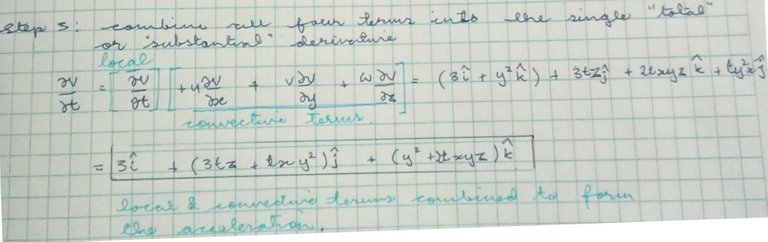 step 3: combine all four terms into the single "total"
or "substantial" derivative
local
∂V/∂t = [∂V/∂t] [+u ∂V/∂x + v ∂V/∂y + w ∂V/∂z] = (3î + y²k̂) + 3tzĵ + 2txyz k̂ + ty²xĵ
convective terms
= 3î + (3tz + txy²)ĵ + (y² + 2txyz)k̂
local & convective terms combined to form
the acceleration.